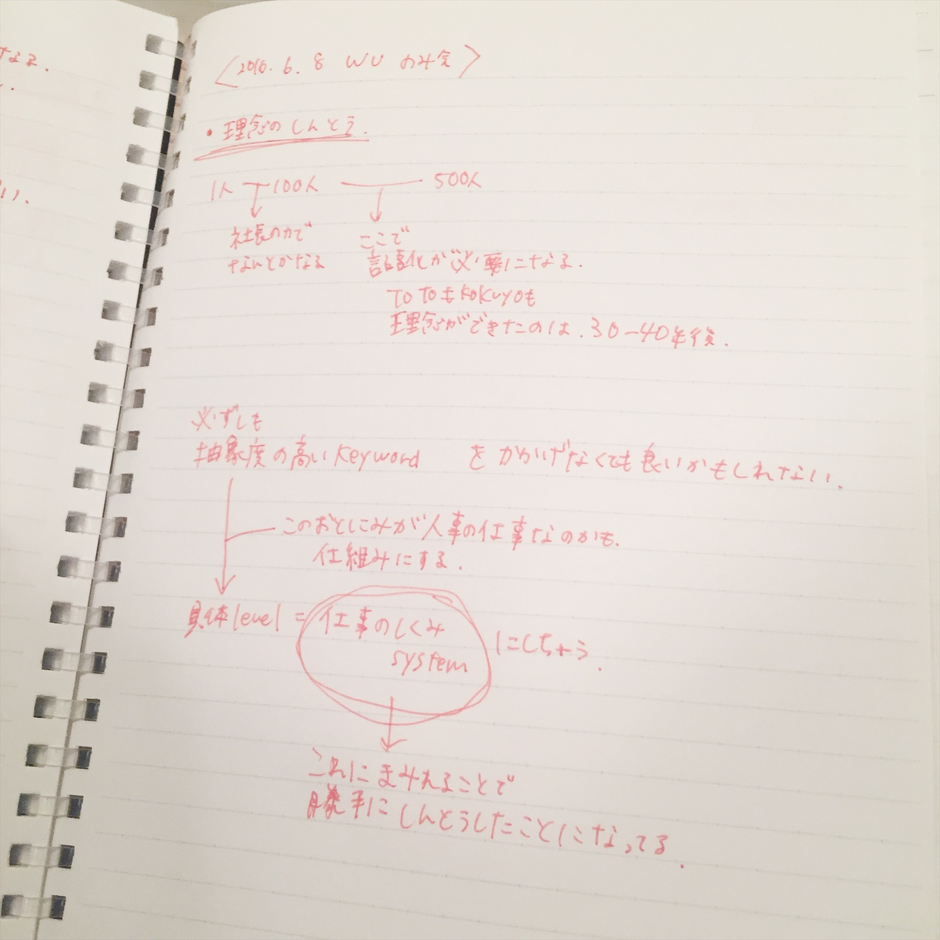 なる.
〈2016. 6. 8 WU のみ会〉
・理念のしんとう.
1人 100人 500人
社長の力で
なんとかなる
ここで
言語化が必要になる.
TOTOもKOKUYOも
理念ができたのは、30-40年後.
必ずしも
抽象度の高いkeyword をかかげなくても良いかもしれない.
このおとしこみが人事の仕事なのかも.
仕組みにする.
具体level = 仕事のしくみ にしちゃう.
system
これにまみれることで
勝手にしんとうしたことになってる.